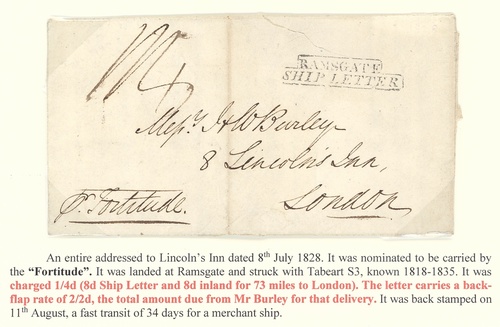 RAMSGATE
SHIP LETTER
Messrs J & W Burley
8 Lincoln's Inn,
London
pr. Fortitude.
An entire addressed to Lincoln's Inn dated 8th July 1828. It was nominated to be carried by
the "Fortitude". It was landed at Ramsgate and struck with Tabeart S3, known 1818-1835. It was
charged 1/4d (8d Ship Letter and 8d inland for 73 miles to London). The letter carries a back-
flap rate of 2/2d, the total amount due from Mr Burley for that delivery. It was back stamped on
11th August, a fast transit of 34 days for a merchant ship.